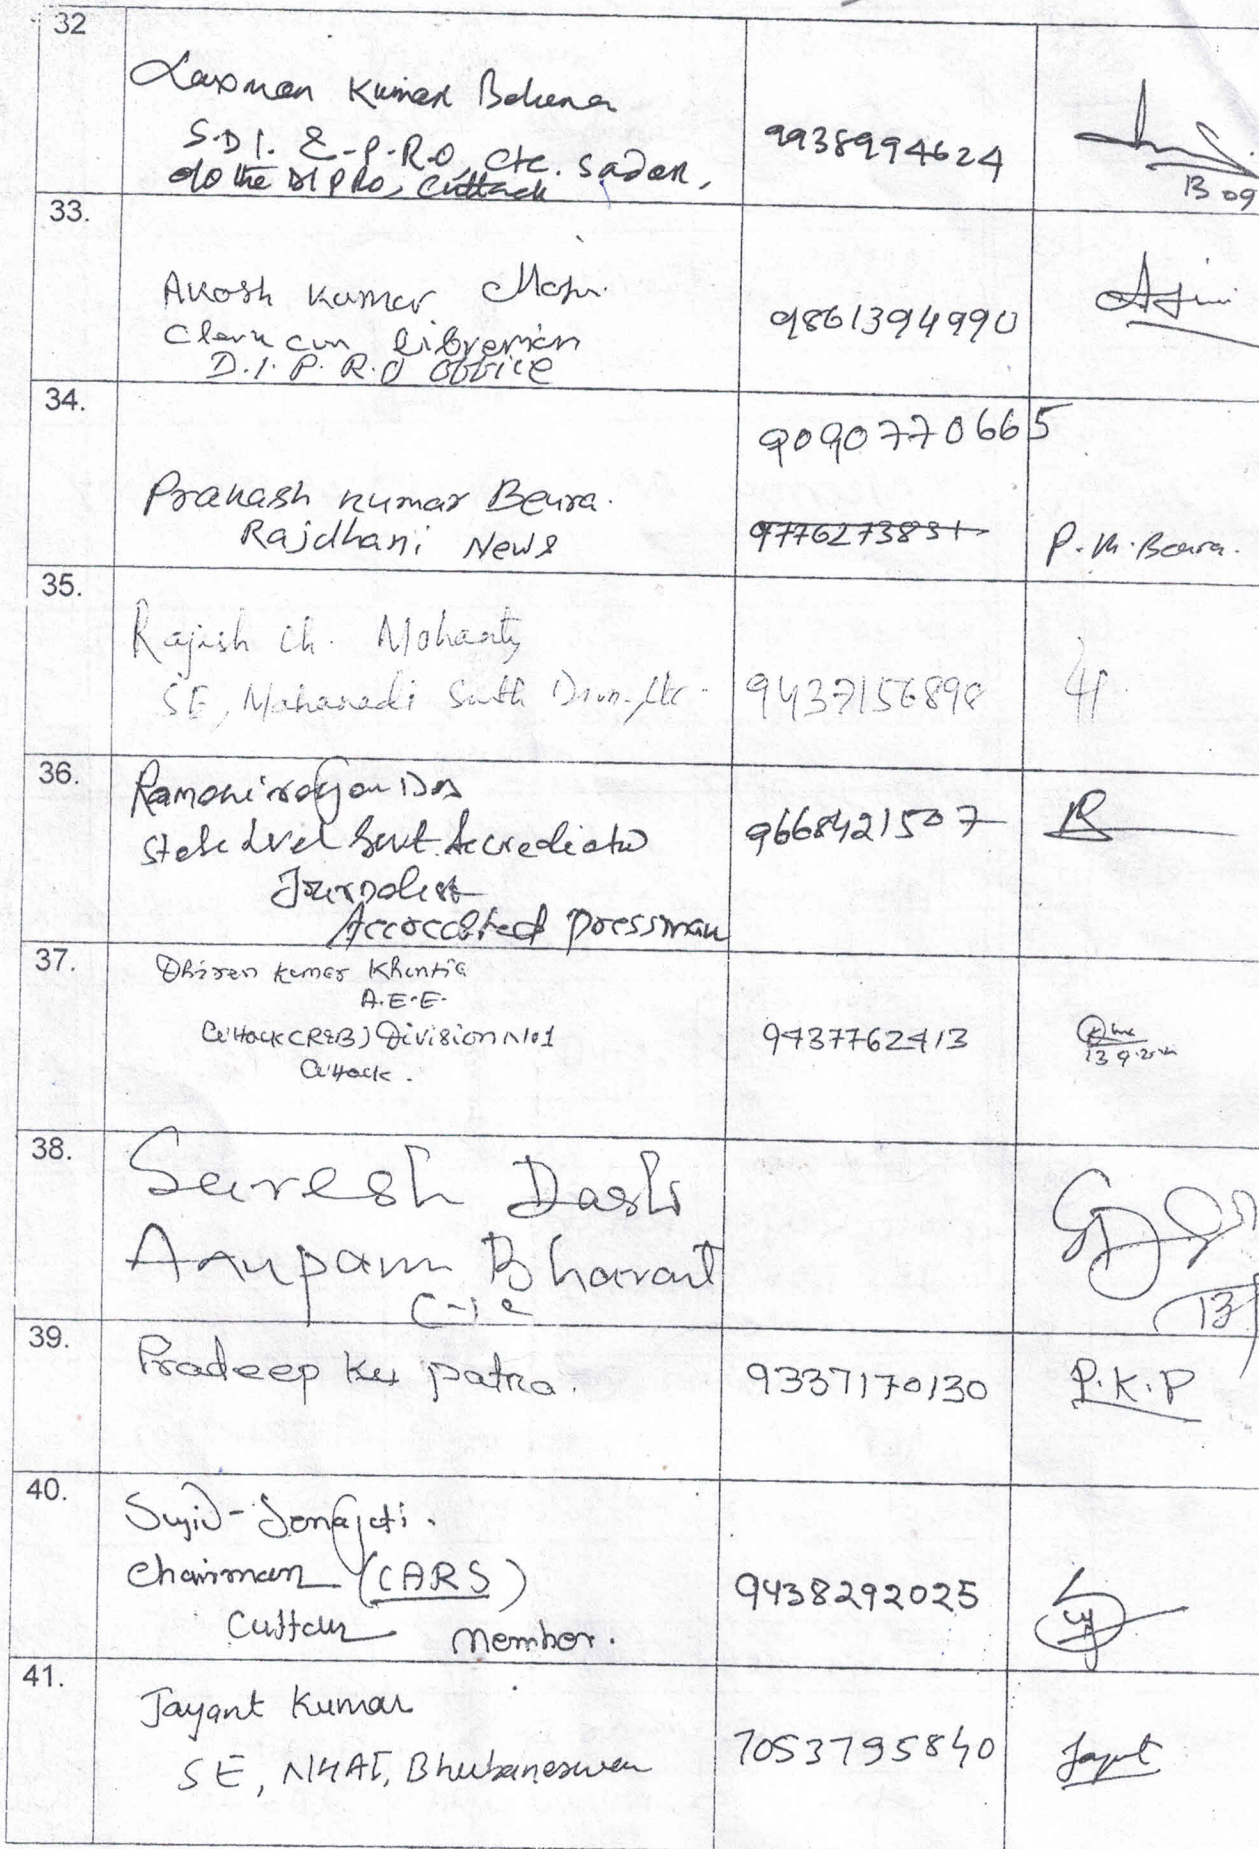 32
Laxman Kumar Behera
S.D.I. & P.R.O, Ctc. Sadar,
O/o the DIPRO, Cuttack
9938994624
13 09
33.
Akash Kumar
Clerk cum Librerian
D.I.P.R.O office
9861394990
34.
9090770665
Prakash Kumar Beura.
Rajdhani News
977627383
P.K. Beura.
35.
Rajish Ch. Mohanty
SE, Mahanadi South Divn. Ctc.
9437156898
36.
Ramani ranjan Das
State Level Govt. Accrediated
Journalist
Pressman
9668421507
37.
Dhiren Kumar Khuntia
A.E.E.
Cuttack (R&B) Division No1
Cuttack.
9437762413
13 9
38.
Suresh Dash
Anupam Bharat
13
39.
Pradeep Ku patra.
9337170130
P.K.P
40.
Chairman (CARS)
Cuttack member.
9438292025
41.
Jayant Kumar
SE, NHAI, Bhubaneswar
7053795840
Jayant